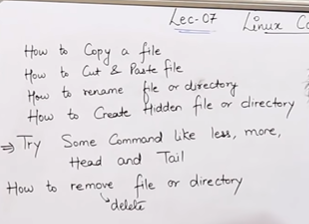 Lec-07 Linux Co
How to Copy a file
How to Cut & Paste file
How to rename file or directory
How to Create Hidden file or directory
⇒ Try Some Command like less, more,
Head and Tail
How to remove file or directory
delete